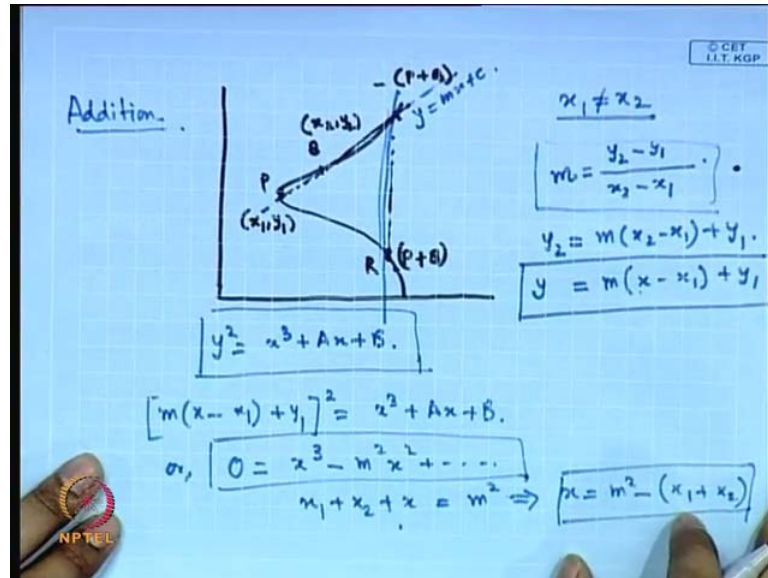 © CET
I.I.T. KGP
Addition.
- (P+Q).
y = mx + c.
(x₁, y₂)
Q
P
(x₁, y₁)
R (P+Q)
x₁ ≠ x₂
m = (y₂ - y₁)/(x₂ - x₁) .
y₂ = m(x₂ - x₁) + y₁.
y = m(x - x₁) + y₁
y² = x³ + Ax + B.
[m(x - x₁) + y₁]² = x³ + Ax + B.
or, 0 = x³ - m²x² + - - - -
x₁ + x₂ + x = m² ⇒ x = m² - (x₁ + x₂)
NPTEL